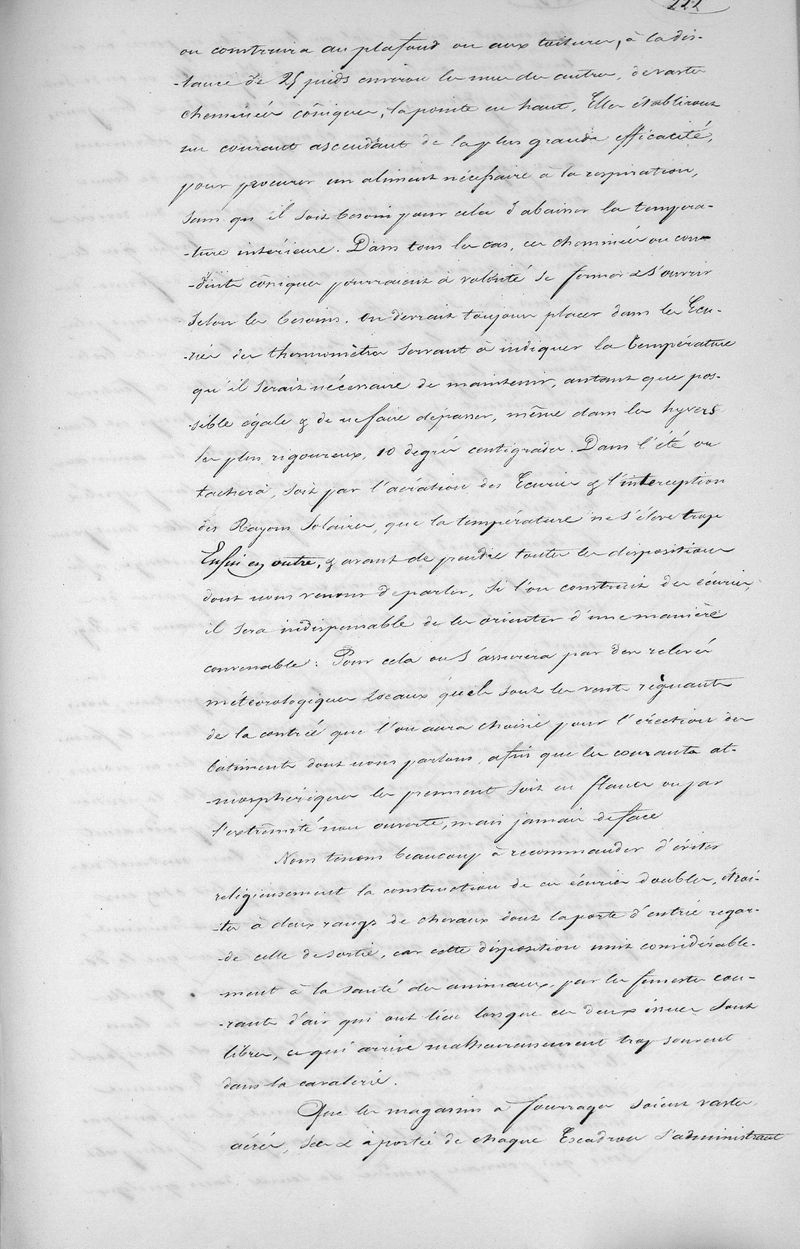 222
on construira au plafond ou aux toitures, à la dis-
-tance de 25 pieds environ les unes des autres, de vastes
cheminées côniques, la pointe en haut. Elles établiront
un courant ascendant de la plus grande efficacité,
pour procurer un aliment nécessaire à la respiration,
sans qu'il soit besoin pour cela d'abaisser la tempera-
-ture intérieure. Dans tous les cas, ces cheminées ou con-
-duits côniques pourraient à volonté se fermer & s'ouvrir
selon les besoins. On devrait toujours placer dans les Ecu-
-ries des thermomètres servant à indiquer la température
qu'il serait nécessaire de maintenir, autant que pos-
-sible égale & de ne faire depasser, même dans les hyvers
les plus rigoureux, 10 degrés centigrades. Dans l'été on
tachera, soit par l'aération des Ecuries & l'interception
des Rayons Solaires, que la température ne s'élève trop
Enfin en outre, & avant de prendre toutes les dispositions
dont nous venons de parler, si l'on construit des écuries,
il sera indispensable de les orienter d'une manière
convenable : Pour cela on s'assurera par des relevés
météorologiques locaux quels sont les vents régnants
de la contrée que l'on aura choisie pour l'érection des
bâtiments dont nous parlons, afin que les courants at-
-mosphériques les prennent soit en flancs ou par
l'extrêmité non ouverte, mais jamais de face
Nous tenons beaucoup à recommander d'éviter
religieusement la construction de ces écuries doubles, étroi-
-tes à deux rangs de chevaux dont la porte d'entrée regar-
-de celle de sortie, car cette disposition nuit considérable-
-ment à la santé des animaux, par les funestes cou-
-rants d'air qui ont lieu lorsque ces deux issues sont
libres, ce qui arrive malheureusement trop souvent
dans la cavalerie.
Que les magasins à fourrages soient vastes,
aérés, secs & à portée de chaque Escadron s'administrant